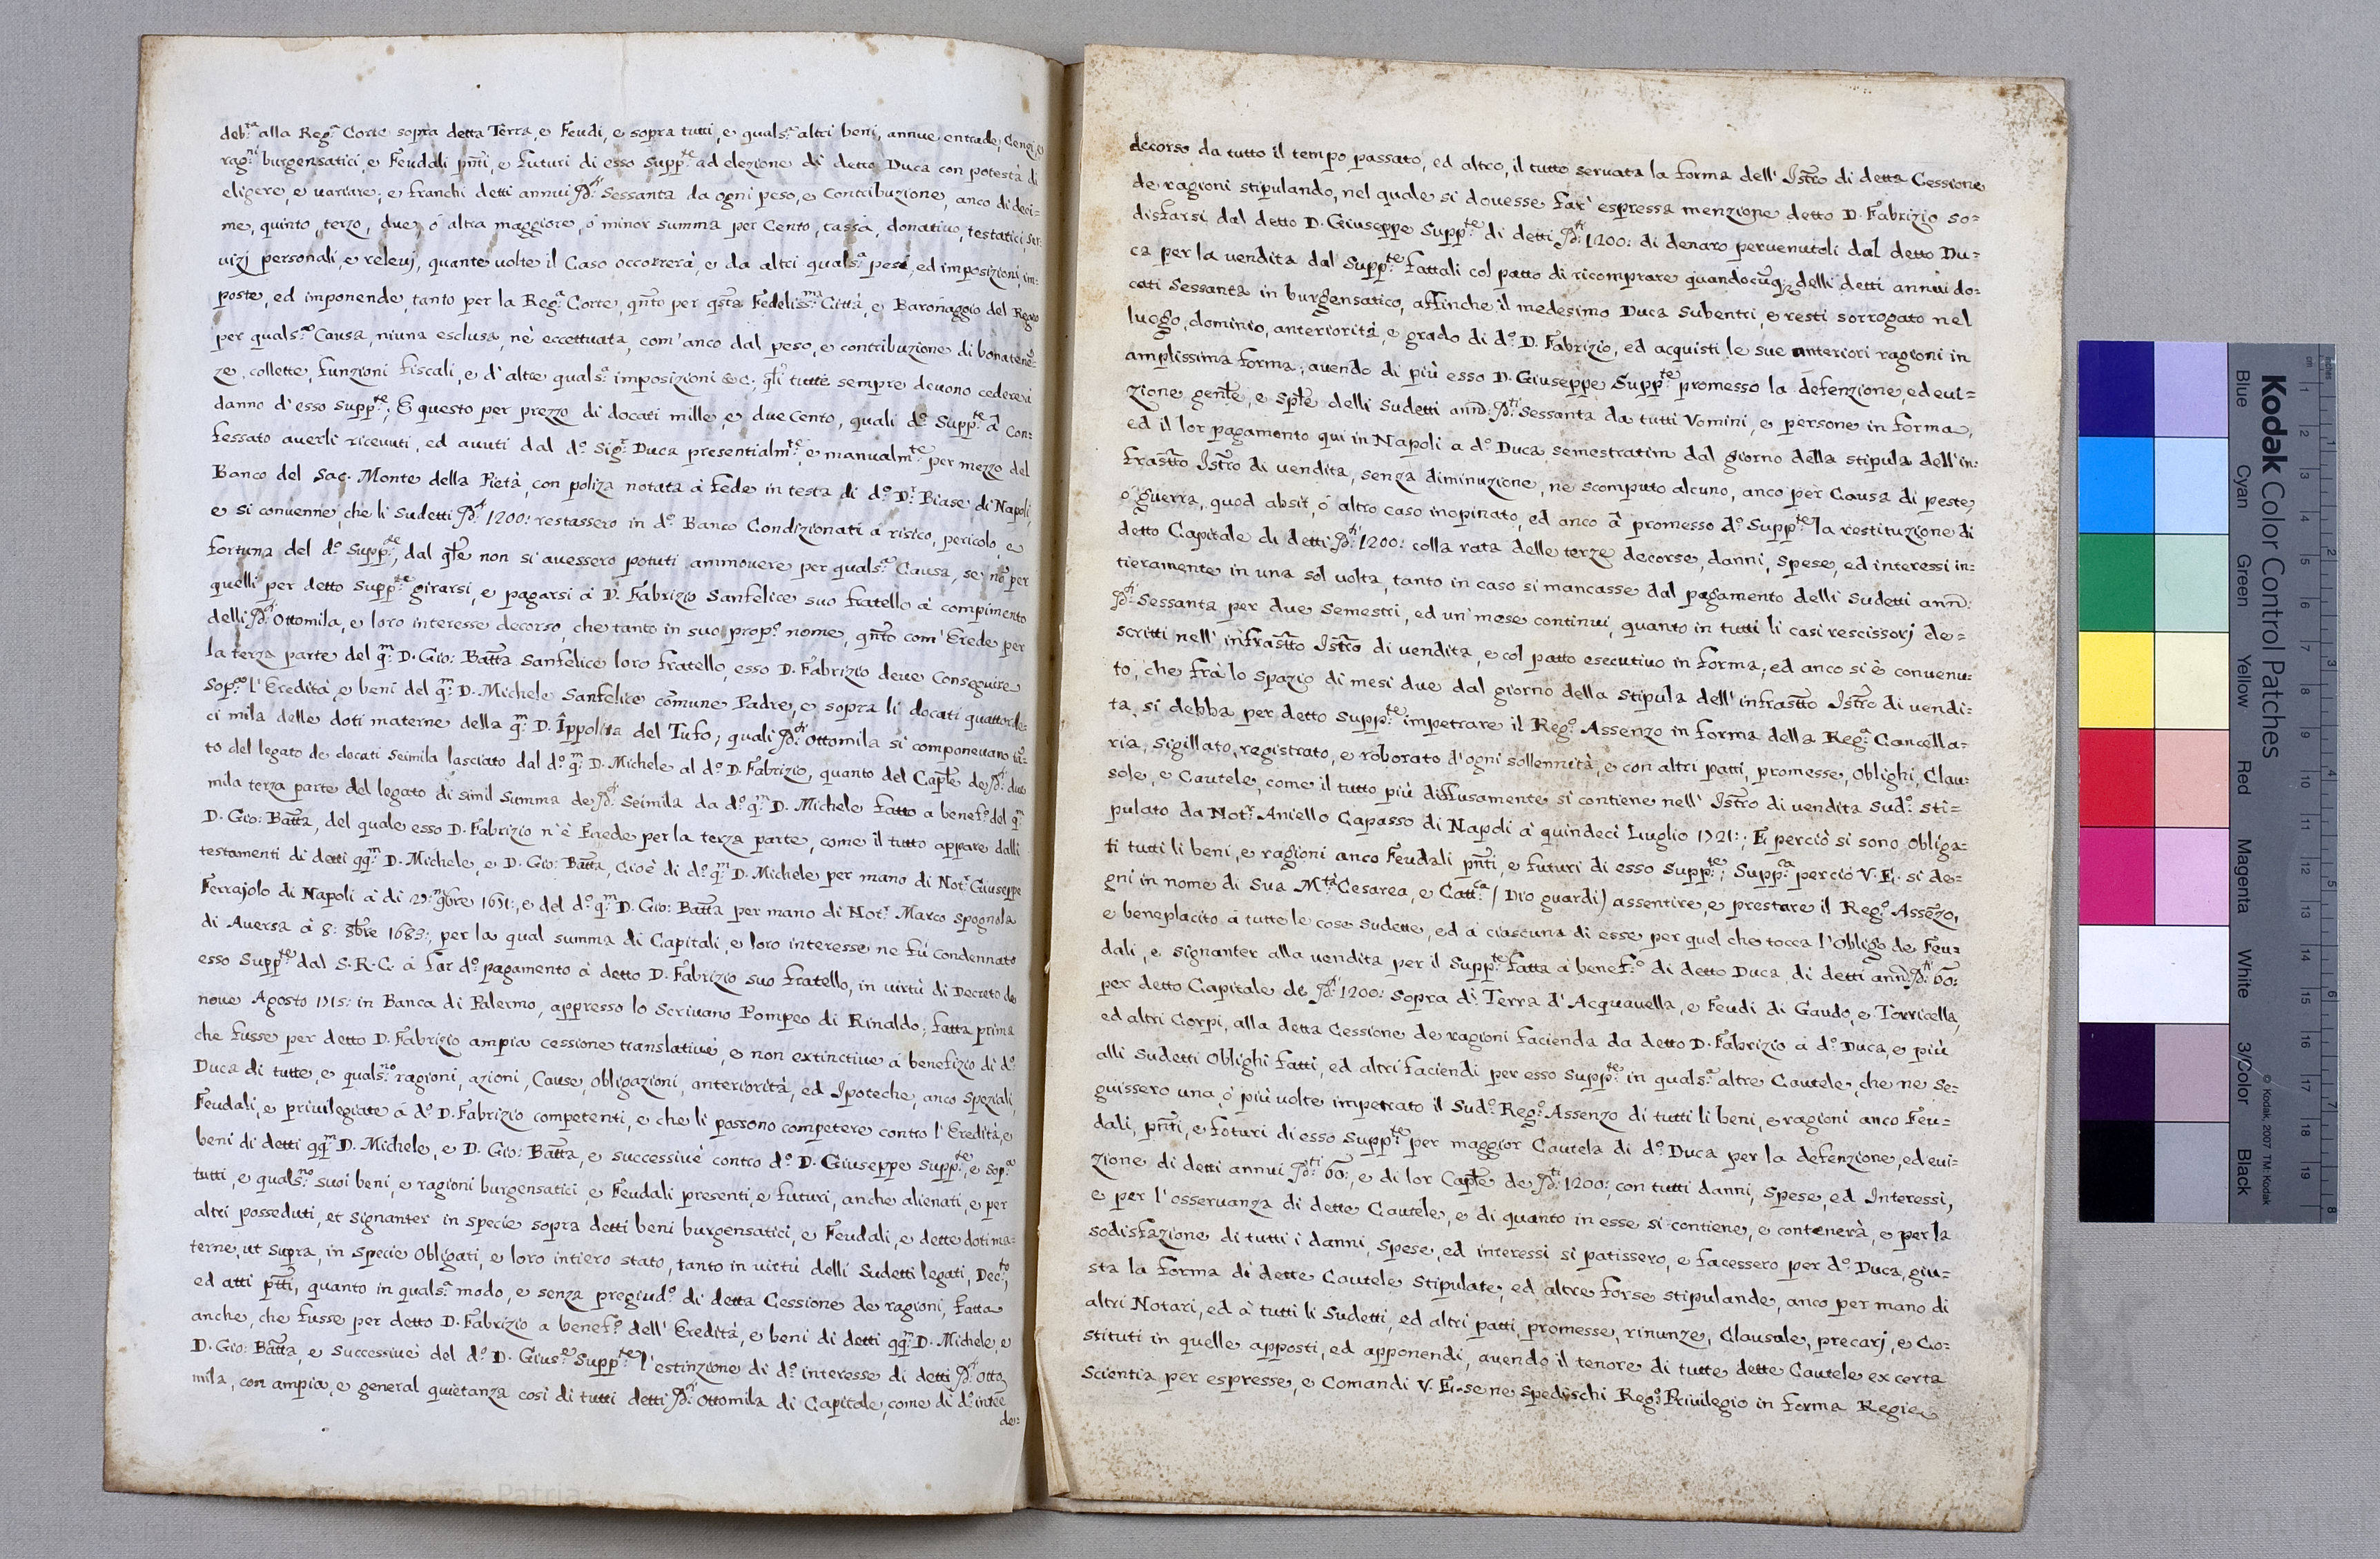 deb:ta alla Reg.a Corte sopra detta Terra, e Feudi, e sopra tutti, e quals.a altri beni, annue entrade, Cenzi, e
rag:ni burgensatici, e Feudali pñti, e futuri di esso Supp:te ad elezione di detto Duca con potestà di
eligere, e variare; e franchi detti annui D:ti Sessanta da ogni peso, e Contribuzione, anco di deci=
me, quinto, terzo, due, ò altra maggiore, ò minor summa per Cento, tassa, donativo, testatici, ser:
vizj personali, e relevj, quante volte il Caso occorrerà, e da altri quals:a pesi, ed imposizioni, im:
poste, ed imponende, tanto per la Reg:a Corte, qñto per qsta Fedeliss:ma Città, e Baronaggio del Regno
per quals:a Causa, niuna esclusa, nè eccettuata, com'anco dal peso, e contribuzione di bonatenē:
ze, collette, funzioni fiscali, e d'altre quals:a imposizioni &c; qli tutte sempre devono cedere à
danno d'esso Supp:te; E questo per prezzo di docati mille, e due Cento, quali d:o Supp:te â Con:
fessato averli ricevuti, ed avuti dal d:o Sig:r Duca presentialm:te, e manualm:te per mezzo del
Banco del Sac. Monte della Pietà, con poliza notata à fede in testa di d:o D:r Biase di Napoli,
e si convenne, che li Sudetti D:ti 1200: restassero in d:o Banco Condizionati à risico, pericolo, e
fortuna del d:o Supp:te, dal qle non si avessero potuti ammovere per quals:a Causa, se nõ per
quelli per detto Supp:te girarsi, e pagarsi à D. Fabrizio Sanfelice suo fratello à compimento
delli D:ti Ottomila, e loro interesse decorso, che tanto in suo prop:o nome, qñto com'Erede per
la terza parte del q:m D. Gio: Batta Sanfelice loro fratello, esso D. Fabrizio deve Conseguire
sop:a l'Eredità, e beni del q:m D. Michele Sanfelice comune Padre, e sopra li docati quattorde=
ci mila delle doti materne della q:m D. Ippolita del Tufo; quali D:ti Ottomila si componevano tã=
to del legato de docati Seimila lasciato dal d:o q:m D. Michele al d:o D. Fabrizio, quanto del Caple de D:ti due
mila terza parte del legato di simil Summa de D:ti Seimila da d:o q:m D. Michele fatto a benef:o del q:m
D. Gio: Batta, del quale esso D. Fabrizio n'è Erede per la terza parte, come il tutto appare dalli
testamenti di detti qq:m D. Michele, e D. Gio: Batta, Cioè di d:o q:m D. Michele per mano di Not:r Giuseppe
Ferrajolo di Napoli à di 29: 9mbre 1671:, e del d:o q:m D. Gio: Batta per mano di Not:r Marco Spognola
di Aversa à 8: 8bre 1683:, per la qual summa di Capitali, e loro interesse ne fù condennato
esso Supp:te dal S. R. C. à far d:o pagamento à detto D. Fabrizio suo fratello, in virtù di Decreto de
nove Agosto 1715: in Banca di Palermo, appresso lo Scrivano Pompeo di Rinaldo; fatta prima
che fusse per detto D. Fabrizio ampia cessione translativè, e non extinctivè à benefizio di d:o
Duca di tutte, e quals:no ragioni, azioni, Cause, obligazioni, anteriorità, ed Ipoteche, anco Speziali,
Feudali, e privilegiate à d:o D. Fabrizio competenti, e che li possono competere contro l'Eredità, e
beni di detti qq:m D. Michele, e D. Gio: Batta, e successivè contro d:o D. Giuseppe Supp:te, e sop:a
tutti, e quals:no suoi beni, e ragioni burgensatici, e Feudali presenti, e futuri, anche alienati, e per
altri posseduti, et signanter in specie sopra detti beni burgensatici, e Feudali, e dette doti ma=
terne, ut supra, in specie Obligati, e loro intiero stato, tanto in virtù delli Sudetti legati, Dec:to,
ed atti ptti, quanto in quals:a modo, e senza pregiud:o di detta Cessione de ragioni, fatta
anche, che fusse per detto D. Fabrizio a benef:o dell'Eredità, e beni di detti qq:m D. Michele, e
D. Gio: Batta, e successivè del d:o D. Gius:e Supp:te l'estinzione di d:o interesse di detti D:ti Otto
mila, con ampia, e general quietanza così di tutti detti D:ti Ottomila di Capitale, come di d:o inteē
de:
decorso da tutto il tempo passato, ed altro, il tutto servata la forma dell'Istro di detta Cessione
de ragioni stipulando, nel quale si dovesse far'espressa menzione detto D. Fabrizio so=
disfarsi dal detto D. Giuseppe Supp:te di detti D:ti 1200: di denaro pervenutoli dal detto Du=
ca per la vendita dal Supp:te fattali col patto di ricomprare quandocūq; delli detti annui do=
cati Sessanta in burgensatico, affinche il medesimo Duca subentri, e resti sorrogato nel
luogo, dominio, anteriorità, e grado di d:o D. Fabrizio, ed acquisti le sue anteriori ragioni in
amplissima forma; avendo di più esso D. Giuseppe Supp:te promesso la defenzione, ed evi=
zione genle, e sple delli Sudetti anñ: D:ti Sessanta da tutti Vomini, e persone in forma,
ed il lor pagamento qui in Napoli a d:o Duca semestratim dal giorno della stipula dell'in:
frastto Istro di vendita, senza diminuzione, ne scomputo alcuno, anco per Causa di peste,
ò guerra, quod absit, ò altro caso inopinato, ed anco â promesso d:o Supp:te la restituzione di
detto Capitale di detti D:ti 1200: colla rata delle terze decorse, danni, spese, ed interessi in=
tieramente in una sol volta, tanto in caso si mancasse dal pagamento delli Sudetti anñ:
D:ti Sessanta per due Semestri, ed un'mese continui, quanto in tutti li casi rescissorj de=
scritti nell'infrastto Istro di vendita, e col patto esecutivo in forma; ed anco si è convenu:
to, che frà lo spazio di mesi due dal giorno della stipula dell'infrastto Istro di vendi:
ta, si debba per detto Supp:te impetrare il Reg:o Assenzo in forma della Reg:a Cancella=
ria, sigillato, registrato, e roborato d'ogni sollennità, e con altri patti, promesse, Oblighi, Clau:
sole, e Cautele, come il tutto più diffusamente si contiene nell'Istro di vendita Sud:o sti=
pulato da Not:r Aniello Capasso di Napoli à quindeci Luglio 1721:; E perciò si sono obliga=
ti tutti li beni, e ragioni anco Feudali pñti, e futuri di esso Supp:te; Supp:ca perciò V. E. si de=
gni in nome di Sua M:tà Cesarea, e Catt:ca (Dio guardi) assentire, e prestare il Reg:o Assēzo,
e beneplacito à tutte le cose Sudette, ed à ciascuna di esse per quel che tocca l'Obligo de Feu=
dali, e signanter alla vendita per il Supp:te fatta à benef:o di detto Duca di detti anñ: D:ti 60:
per detto Capitale de D:ti 1200: sopra d:a Terra d'Acquavella, e Feudi di Gaudo, e Torricella,
ed altri Corpi, alla detta Cessione de ragioni facienda da detto D. Fabrizio à d:o Duca, e più
alli Sudetti Oblighi fatti, ed altri faciendi per esso Supp:te in quals:a altre Cautele, che ne se=
guissero una, ò più volte impetrato il Sud:o Reg:o Assenzo di tutti li beni, e ragioni anco Feu=
dali, pñti, e foturi di esso Supp:te per maggior Cautela di d:o Duca per la defenzione, ed evi=
zione di detti annui D:ti 60:, e di lor Caple de D:ti 1200: con tutti danni, Spese, ed Interessi,
e per l'osservanza di dette Cautele, e di quanto in esse si contiene, e contenerà, e per la
sodisfazione di tutti i danni, Spese, ed interessi si patissero, e facessero per d:o Duca, giu=
sta la forma di dette Cautele Stipulate, ed altre forse stipulande, anco per mano di
altri Notari, ed à tutti li Sudetti, ed altri patti, promesse, rinunze, Clausale, precarj, e Co=
stituti in quelle apposti, ed apponendi, avendo il tenore di tutte dette Cautele ex certa
Scientia per espresse, e Comandi V. E. se ne spedischi Reg:o Privilegio in forma Regie
Kodak Color Control Patches
Blue Cyan Green Yellow Red Magenta White 3/Color Black
© Kodak, 2007 TM: Kodak